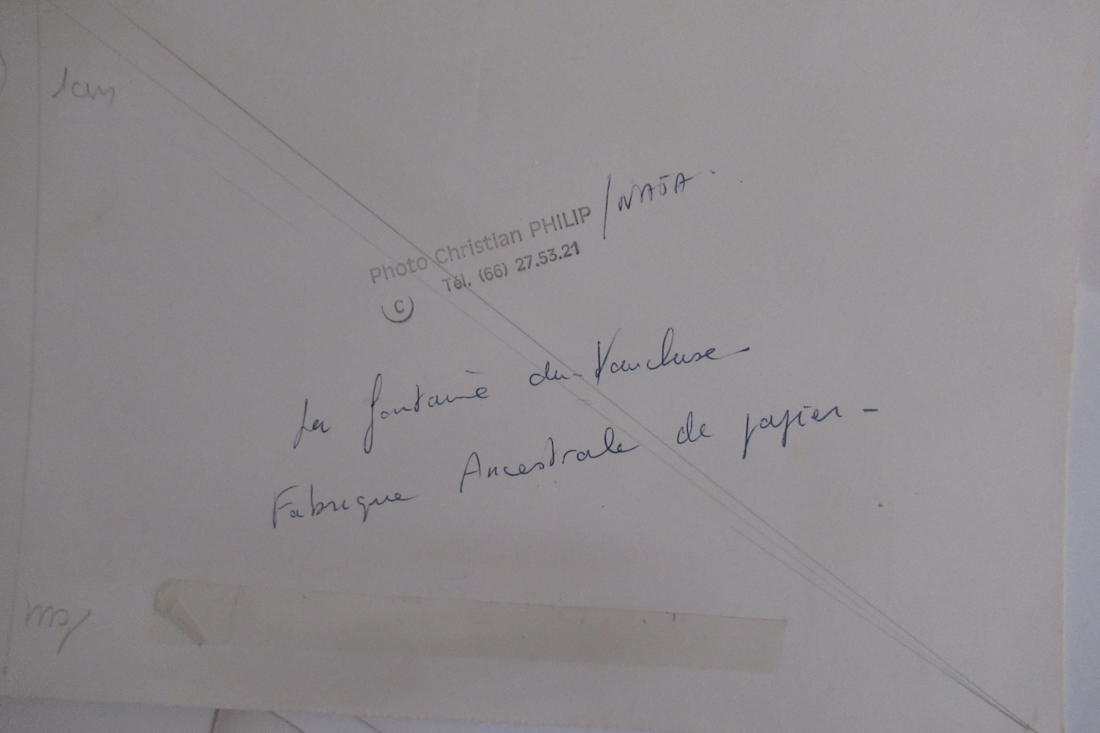 1cm
Photo Christian PHILIP /NAJA.
Tél. (66) 27.53.21
C
La fontaine du Vaucluse
Fabrique Ancestrale de papier -